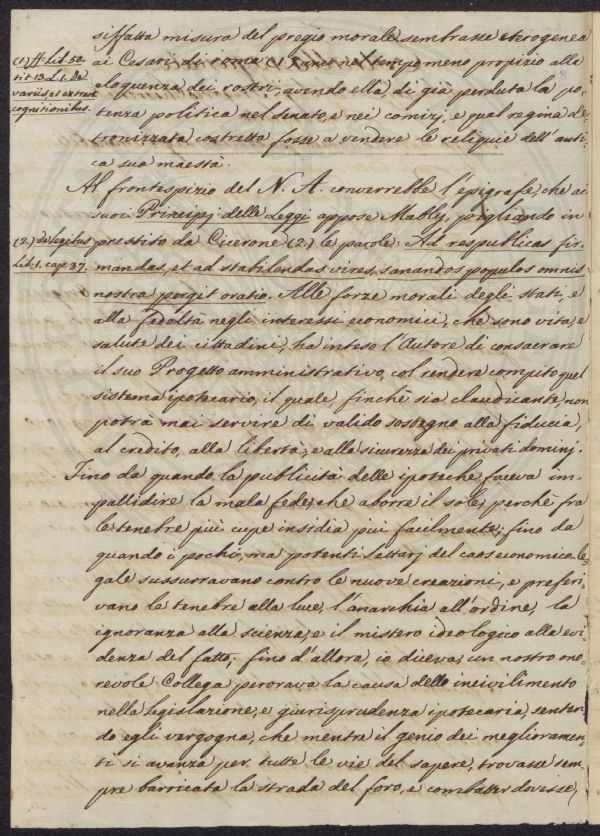 siffatta misura del pregio morale sembrasse eterogenea
(1) ff. Lib. 50
tit. 13. L. 1. De
variis et extraor.
cognitionibus.
ai Cesari di roma (1) anco nel tempo meno propizio alla
eloquenza dei rostri, avendo ella di già perduta la po-
tenza politica nel senato, e nei comizj, e qual regina de-
tronizzata costretta fosse a vendere le reliquie dell'anti-
ca sua maestà.
Al frontespizio del N. A. converrebbe l'epigrafe, che ai
suoi Principj delle Leggi appose Mably, pigliando in
(2.) de Legibus
Lib. 1. cap. 37.
prestito da Cicerone (2.) le parole: Ad respublicas fir-
mandas, et ad stabilendas vires, sanandos populos omnis
nostra pergit oratio. Alle forze morali degli stati, e
alla fedaltà negli interessi economici, che sono vita, e
salute dei cittadini, ha inteso l'Autore di consacrare
il suo Progetto amministrativo, col rendere compito quel
sistema ipotecario, il quale, finchè sia claudicante, non
potrà mai servire di valido sostegno alla fiducia,
al credito, alla libertà, e alla sicurezza dei privati dominj.
Fino da quando la publicità delle ipoteche faceva im-
pallidire la mala fede, che aborre il sole, perchè fra
le tenebre più cupe insidia più facilmente; fino da
quando i pochi, ma potenti settarj del caos economico le-
gale sussurravano contro le nuove creazioni, e preferi-
vano le tenebre alla luce, l'anarchia all'ordine, la
ignoranza alla scienza, e il mistero ideologico alla evi-
denza del fatto; fino d'allora, io diceva, un nostro ono-
revole Collega perorava la causa dello incivilimento
nella legislazione, e giurisprudenza ipotecaria, senten-
do egli vergogna, che mentre il genio dei miglioramen-
ti si avanza per tutte le vie del sapere, trovasse sem-
pre barricata la strada del foro, e combatter dovesse,